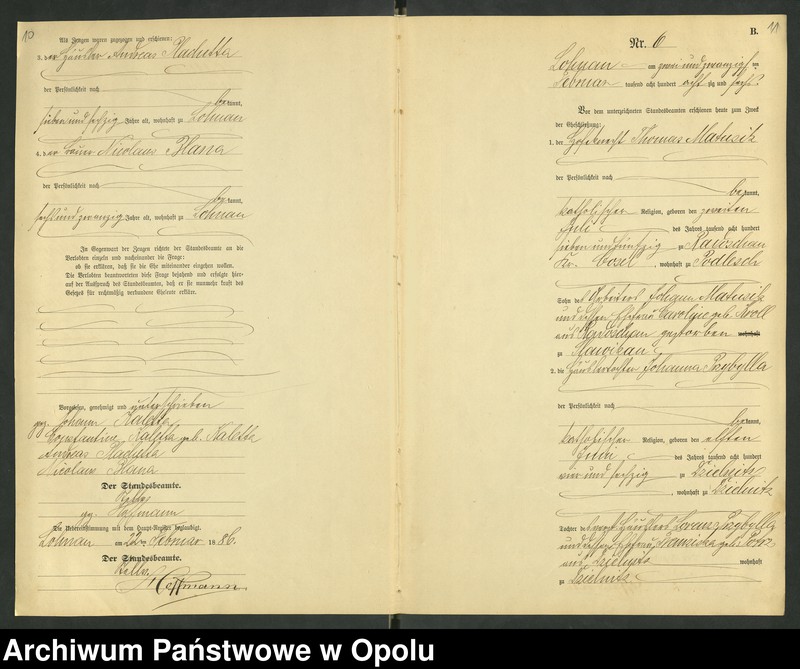 10
Als Zeugen waren zugezogen und erschienen:
3. der Häusler Andreas Kaduttа
der Persönlichkeit nach
bekannt,
sieben und sechzig Jahre alt, wohnhaft zu Lohnau
4. der Bauer Nicolaus Hana
der Persönlichkeit nach
bekannt,
sechs und zwanzig Jahre alt, wohnhaft zu Lohnau
In Gegenwart der Zeugen richtete der Standesbeamte an die
Verlobten einzeln und nacheinander die Frage:
ob sie erklären, daß sie die Ehe miteinander eingehen wollen.
Die Verlobten beantworteten diese Frage bejahend und erfolgte hier-
auf der Ausspruch des Standesbeamten, daß er sie nunmehr kraft des
Gesetzes für rechtmäßig verbundene Eheleute erkläre.
Vorgelesen, genehmigt und unterschrieben
gez. Johann Kaletta
Constantine Kaletta geb. Kaletta
Andreas Kadutta
Nicolaus Hana
Der Standesbeamte.
Stellv.
gez. Hoffmann
Die Uebereinstimmung mit dem Haupt-Register beglaubigt.
Lohnau am 22ten Februar 1886.
Der Standesbeamte.
Stellv.
Hoffmann
11
B.
Nr. 6
Lohnau am zwei und zwanzigsten
Februar tausend acht hundert achtzig und sechs
Vor dem unterzeichneten Standesbeamten erschienen heute zum Zweck
der Eheschließung:
1. der Thomas Matusik
der Persönlichkeit nach
bekannt,
katholischer Religion, geboren den zweiten
Juli des Jahres tausend acht hundert
sieben und fünfzig zu
Kr. Cosel, wohnhaft zu Podlesch
Sohn des Arbeiters Johann Matusik
und dessen Ehefrau Caroline geb. Kroll
aus gestorben wohnhaft
zu
2. die Häuslertochter Johanna Przybylla
der Persönlichkeit nach
bekannt,
katholischer Religion, geboren den elften
Juni des Jahres tausend acht hundert
vier und sechzig zu Dzielnitz
, wohnhaft zu Dzielnitz
Tochter des Häuslers Lorenz Przybylla
und dessen Ehefrau Franziska geb.
aus Dzielnitz wohnhaft
zu Dzielnitz
Archiwum Państwowe w Opolu